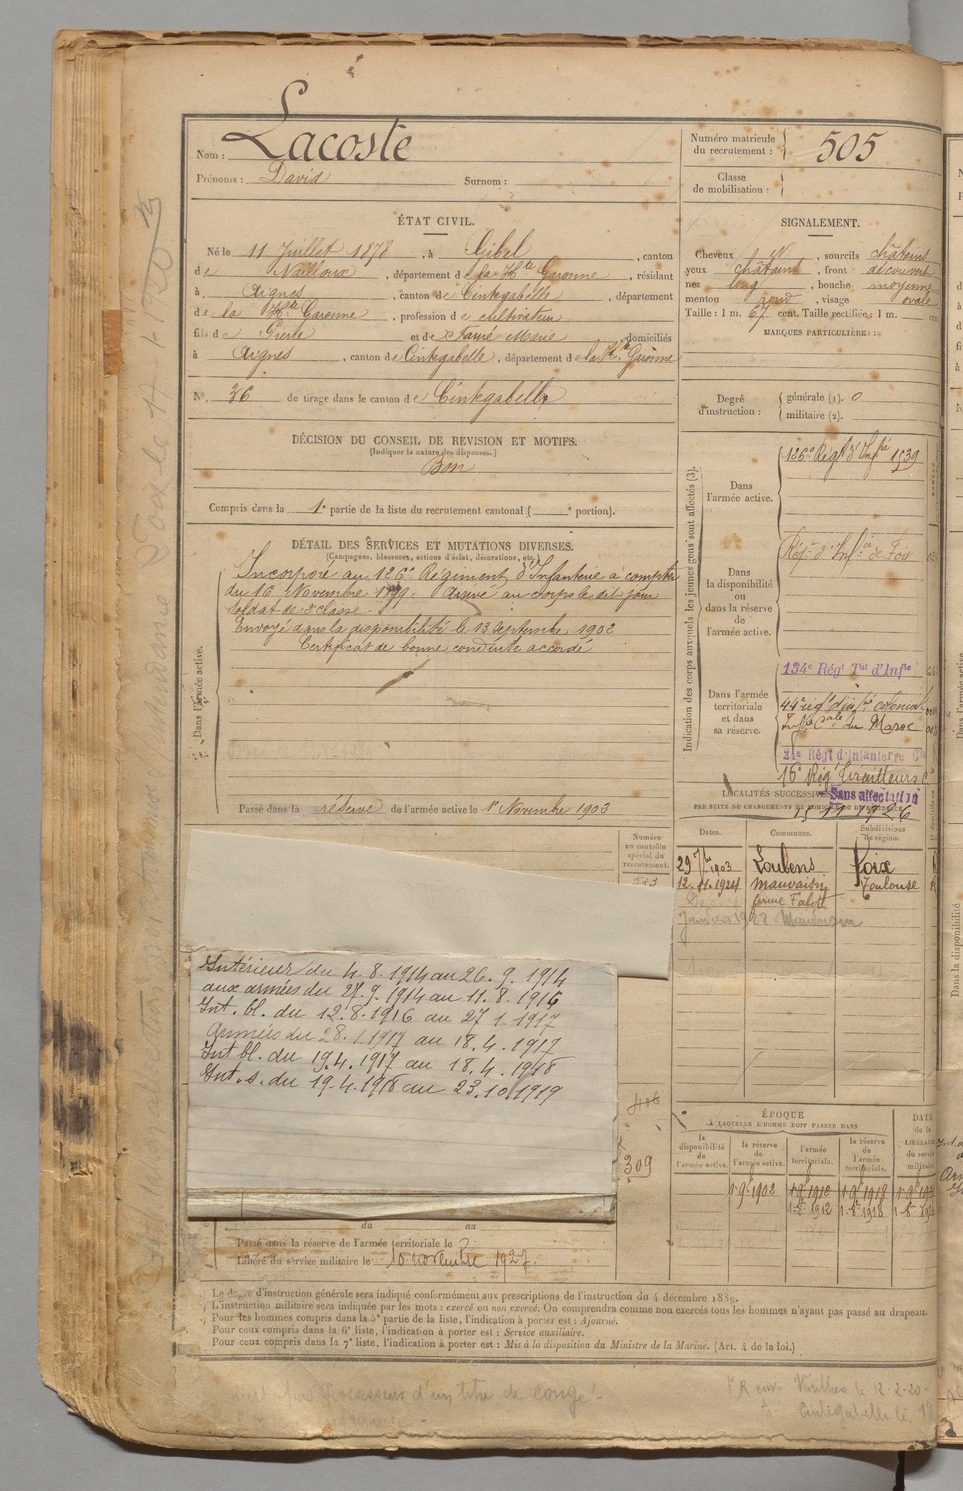 Nom : Lacoste
Prénoms : David Surnom :
Numéro matricule du recrutement : 505
Classe de mobilisation :
ÉTAT CIVIL.
Né le 11 Juillet 1878, à Gibel, canton
de Nailloux, département de la Hte Garonne, résidant
à Aignes, canton de Cintegabelle, département
de la Hte Garonne, profession de cultivateur
fils de Pierre et de Fauré Marie, domiciliés
à Aignes, canton de Cintegabelle, département de la Hte Garonne
N° 36 de tirage dans le canton de Cintegabelle
SIGNALEMENT.
Cheveux et, sourcils châtains
yeux châtains, front découvert
nez long, bouche moyenne
menton rond, visage ovale
Taille : 1 m. 67 cent. Taille rectifiée : 1 m. cent
MARQUES PARTICULIÈRES :
Degré d'instruction : générale (1). 0
militaire (2).
DÉCISION DU CONSEIL DE REVISION ET MOTIFS.
(Indiquer la nature des dispenses.)
Bon
Compris dans la 1e partie de la liste du recrutement cantonal ( e portion).
DÉTAIL DES SERVICES ET MUTATIONS DIVERSES.
(Campagnes, blessures, actions d'éclat, décorations, etc.)
Dans l'armée active.
Incorporé au 126e Régiment d'Infanterie à compter
du 16 Novembre 1899. Arrivé au corps le dit jour
soldat de 2e classe.
Envoyé dans la disponibilité le 13 Septembre 1902
Certificat de bonne conduite accordé
Passé dans la réserve de l'armée active le 1er Novembre 1903
Indication des corps auxquels les jeunes gens sont affectés (3).
Dans l'armée active.
126e Régt d'Infie 1539
Dans la disponibilité ou dans la réserve de l'armée active.
Régt d'Infie de Foix
Dans l'armée territoriale et dans sa réserve.
134e Régt Tal d'Infie
44e régt d'infie colonial
du Maroc
21e Régt d'Infanterie Cle
16e Régt Tirailleurs
Sans affectation
15 11 1926
LOCALITÉS SUCCESSIVES
Dates. Communes. Subdivisions de région.
29 7bre 1903 Loubens Foix
12.11.1924 Mauvaisin Toulouse
Numéro au contrôle spécial du recrutement.
Intérieur du 4.8.1914 au 26.9.1914
aux armées du 27.9.1914 au 11.8.1916
Int. bl. du 12.8.1916 au 27.1.1917
Armées du 28.1.1917 au 18.4.1917
Int bl. du 19.4.1917 au 18.4.1918
Int. s. du 19.4.1918 au 23.10.1919
416
309
ÉPOQUE
À LAQUELLE L'HOMME DOIT PASSER DANS
la disponibilité de l'armée active.
la réserve de l'armée active.
l'armée territoriale.
la réserve de l'armée territoriale.
DATE de la LIBÉRATION du service militaire
1 9e 1902
du au
Passé dans la réserve de l'armée territoriale le
Libéré du service militaire le 10 novembre 1927.
Le degré d'instruction générale sera indiqué conformément aux prescriptions de l'instruction du 4 décembre 1889.
L'instruction militaire sera indiquée par les mots : exercé ou non exercé. On comprendra comme non exercés tous les hommes n'ayant pas passé au drapeau.
Pour les hommes compris dans la 5e partie de la liste, l'indication à porter est : Ajourné.
Pour ceux compris dans la 6e liste, l'indication à porter est : Service auxiliaire.
Pour ceux compris dans la 7e liste, l'indication à porter est : Mis à la disposition du Ministre de la Marine. (Art. 4 de la loi.)
possesseur d'un titre de congé
le 12-2-20
Cintegabelle le